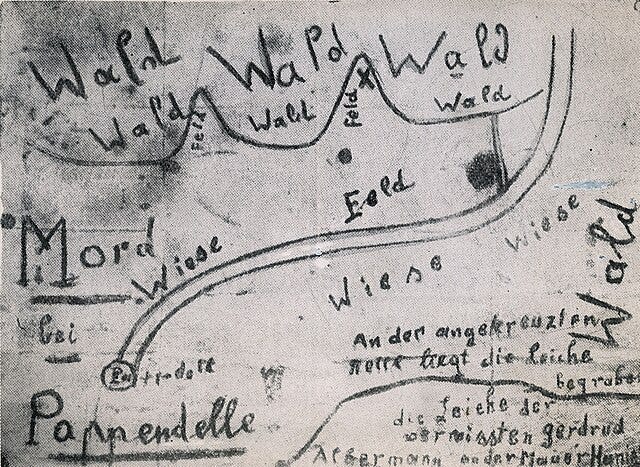 Wald Wald Wald
Wald Wald Wald
Feld Feld
Feld
Mord
Wiese Wiese
Wiese
Wald
bei
An der angekreuzten
liegt die Leiche
begraben
Pappendelle
die Leiche der
vermissten gerdrud
Albermann an der Mauer